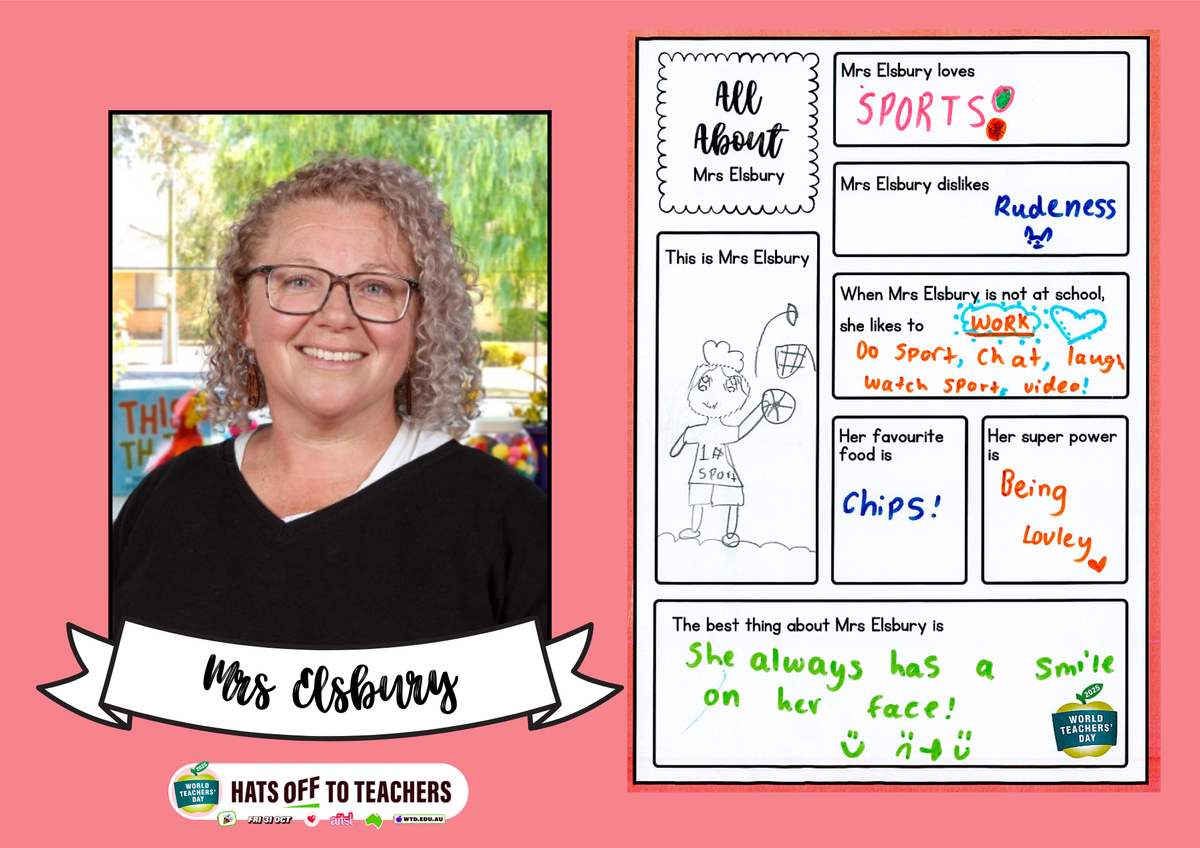 THIS
TH
Mrs Elsbury
2025
WORLD
TEACHERS'
DAY
HATS OFF TO TEACHERS
FRI 31 OCT
aitsl
WTD.EDU.AU
All
About
Mrs Elsbury
This is Mrs Elsbury
1#
SPort
Mrs Elsbury loves
SPORTS!
Mrs Elsbury dislikes
Rudeness
When Mrs Elsbury is not at school,
she likes to WORK
Do sport, chat, laugh
watch sport, video!
Her favourite
food is
Chips!
Her super power
is
Being
Louley
The best thing about Mrs Elsbury is
She always has a smile
on her face!
2025
WORLD
TEACHERS'
DAY